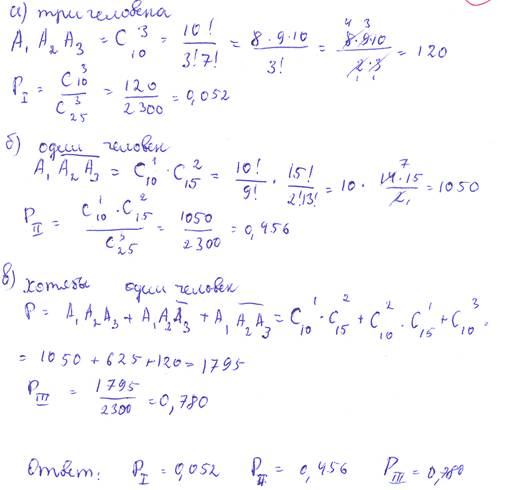 а) три человека
A₁ A₂ A₃ = C₁₀³ = 10!/3!7! = 8·9·10/3! = 8·9·10/2·3 = 120
P_I = C₁₀³/C₂₅³ = 120/2300 = 0,052
б) один человек
A₁ A̅₂ A̅₃ = C₁₀¹ · C₁₅² = 10!/9! · 15!/2!13! = 10 · 14·15/2 = 1050
P_II = C₁₀¹ · C₁₅²/C₂₅³ = 1050/2300 = 0,456
в) хотябы один человек
P = A₁ A₂ A₃ + A₁ A₂ A̅₃ + A₁ A̅₂ A̅₃ = C₁₀¹ · C₁₅² + C₁₀² · C₁₅¹ + C₁₀³ ·
= 1050 + 625 + 120 = 1795
P_III = 1795/2300 = 0,780
Ответ: P_I = 0,052 P_II = 0,456 P_III = 0,780